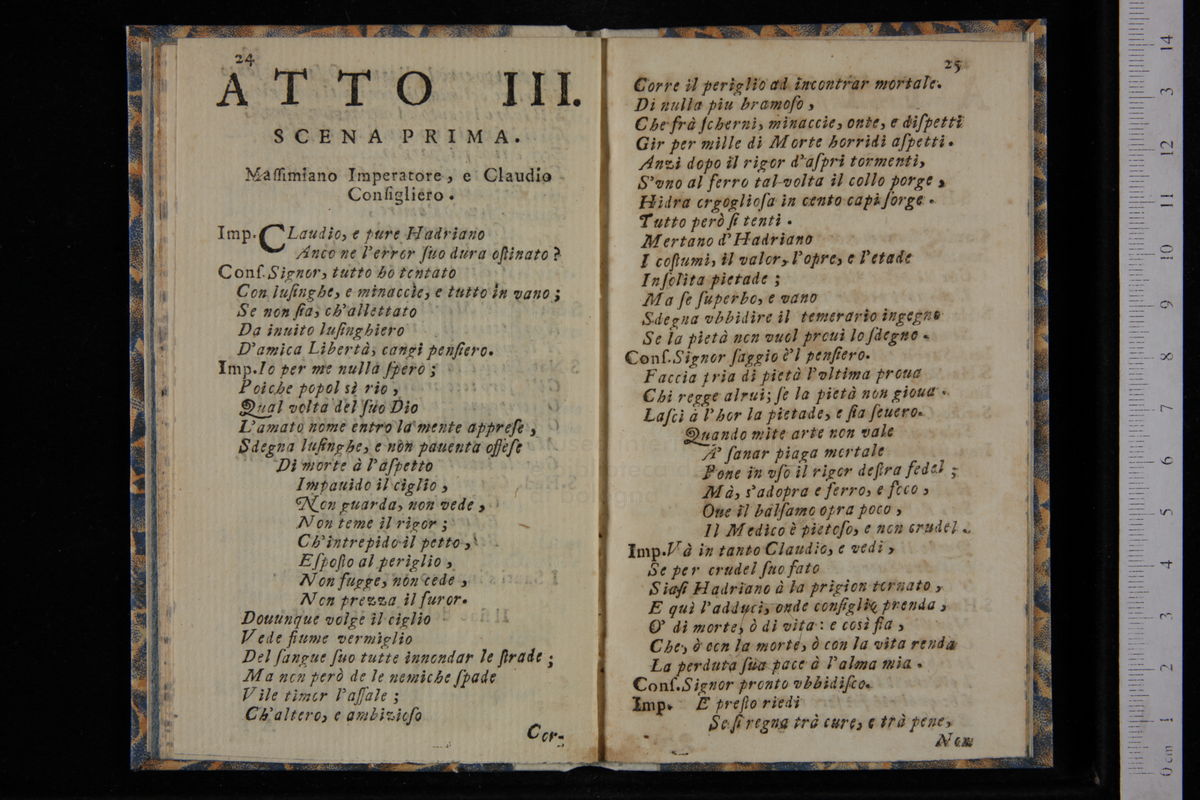 24
ATTO III.
SCENA PRIMA.
Maſſimiano Imperatore, e Claudio
Conſigliero.
Imp. CLaudio, e pure Hadriano
Anco ne l'error ſuo dura oſtinato?
Conſ. Signor, tutto ho tentato
Con luſinghe, e minaccie, e tutto in vano;
Se non ſia, ch'allettato
Da inuito luſinghiero
D'amica Libertà, cangi penſiero.
Imp. Io per me nulla ſpero;
Poiche popol sì rio,
Qual volta del ſuo Dio
L'amato nome entro la mente appreſe,
Sdegna luſinghe, e non pauenta offeſe
Di morte à l'aſpetto
Impauido il ciglio,
Non guarda, non vede,
Non teme il rigor;
Ch'intrepido il petto,
Eſpoſto al periglio,
Non fugge, non cede,
Non prezza il furor.
Douunque volge il ciglio
Vede fiume vermiglio
Del ſangue ſuo tutte innondar le ſtrade;
Ma non però de le nemiche ſpade
Vile timor l'aſſale;
Ch'altero, e ambizioſo
Cor-
25
Corre il periglio ad incontrar mortale.
Di nulla piu bramoſo,
Che frà ſcherni, minaccie, onte, e diſpetti
Gir per mille di Morte horridi aſpetti.
Anzi dopo il rigor d'aſpri tormenti,
S'vno al ferro tal-volta il collo porge,
Hidra orgoglioſa in cento capi ſorge.
Tutto però ſi tenti.
Mertano d'Hadriano
I coſtumi, il valor, l'opre, e l'etade
Inſolita pietade;
Ma ſe ſuperbo, e vano
Sdegna vbbidire il temerario ingegno
Se la pietà non vuol proui lo ſdegno.
Conſ. Signor ſaggio è'l penſiero.
Faccia pria di pietà l'vltima proua
Chi regge alrui; ſe la pietà non gioua.
Laſci à l'hor la pietade, e ſia ſeuero.
Quando mite arte non vale
A' ſanar piaga mortale
Pone in vſo il rigor deſtra fedel;
Mà, s'adopra e ferro, e foco,
Oue il balſamo opra poco,
Il Medico è pietoſo, e non crudel.
Imp. Và in tanto Claudio, e vedi,
Se per crudel ſuo fato
Siaſi Hadriano à la prigion tornato,
E quì l'adduci, onde conſiglio prenda,
O' di morte, ò di vita: e così fia,
Che, ò con la morte, ò con la vita renda
La perduta ſua pace à l'alma mia.
Conſ. Signor pronto vbbidiſco.
Imp. E preſto riedi
Se ſi regna trà cure, e trà pene,
Non